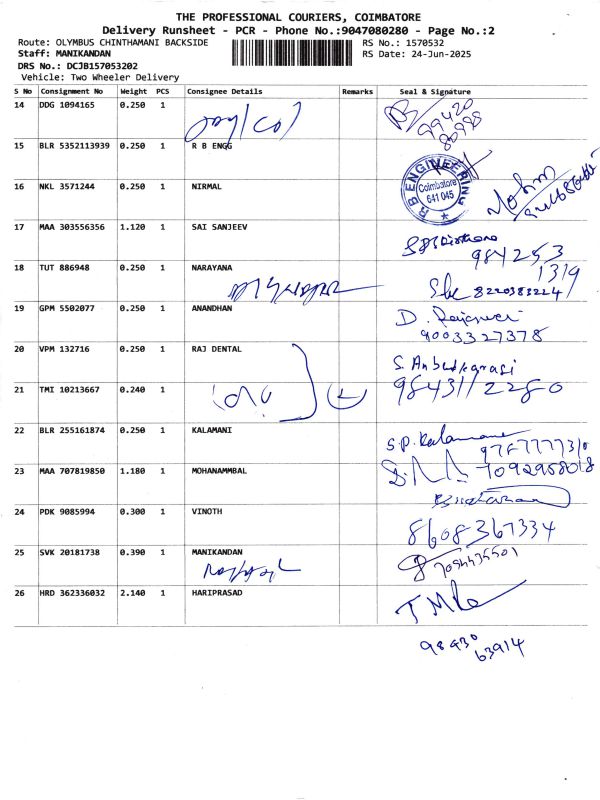 THE PROFESSIONAL COURIERS, COIMBATORE
Delivery Runsheet - PCR - Phone No.:9047080280 - Page No.:2
Route: OLYMBUS CHINTHAMANI BACKSIDE RS No.: 1570532
Staff: MANIKANDAN RS Date: 24-Jun-2025
DRS No.: DCJB157053202
Vehicle: Two Wheeler Delivery
S No Consignment No Weight PCS Consignee Details Remarks Seal & Signature
14 DDG 1094165 0.250 1
99420
80998
15 BLR 5352113939 0.250 1 R B ENGG
R B ENGINEERING
Coimbatore
641 045
16 NKL 3571244 0.250 1 NIRMAL
Mohm
17 MAA 303556356 1.120 1 SAI SANJEEV
984253
1319
18 TUT 886948 0.250 1 NARAYANA
8220383224
19 GPM 5502077 0.250 1 ANANDHAN
D. Rajeswari
9003327378
20 VPM 132716 0.250 1 RAJ DENTAL
S. Anbukkarasi
21 TMI 10213667 0.240 1
9843112280
22 BLR 255161874 0.250 1 KALAMANI
S.P. Kalamani
9767777310
23 MAA 707819850 1.180 1 MOHANAMMBAL
7092958018
24 PDK 9085994 0.300 1 VINOTH
8608367334
25 SVK 20181738 0.390 1 MANIKANDAN
26 HRD 362336032 2.140 1 HARIPRASAD
98430
63914